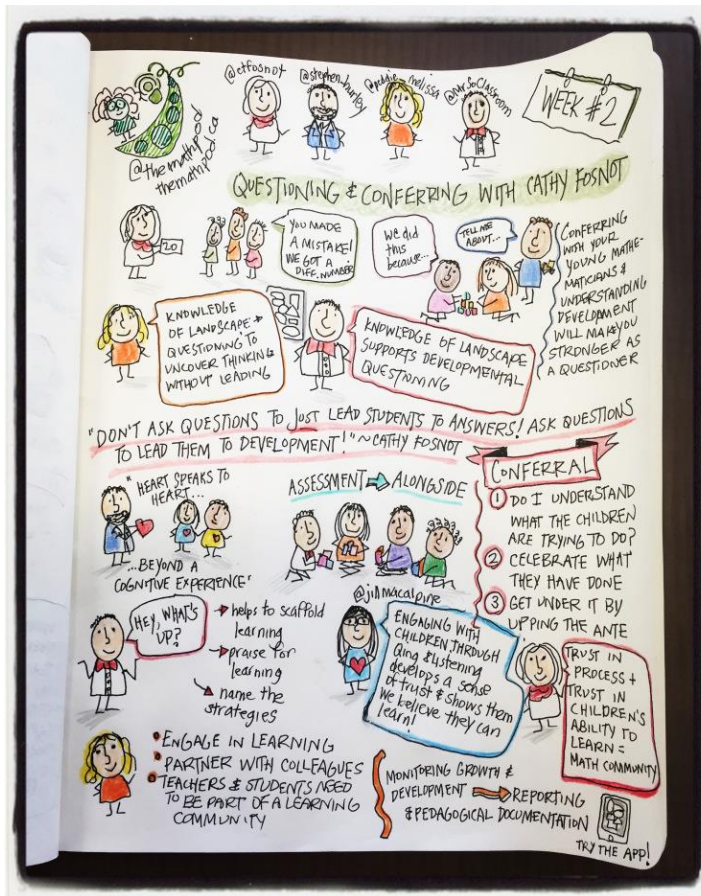 @ctfosnot
@stephen_hurley
melissa
@MrSoClassroom
@themathpod
themathpod.ca
WEEK #2
QUESTIONING & CONFERRING WITH CATHY FOSNOT
20
YOU MADE
A MISTAKE!
WE GOT A
DIFF. NUMBER
We did
this
because...
TELL ME
ABOUT...
CONFERRING
WITH YOUR
YOUNG MATHE-
MATICIANS &
UNDERSTANDING
DEVELOPMENT
WILL MAKE YOU
STRONGER AS
A QUESTIONER
KNOWLEDGE
OF LANDSCAPE +
QUESTIONING TO
UNCOVER THINKING
WITHOUT LEADING
KNOWLEDGE OF LANDSCAPE
SUPPORTS DEVELOPMENTAL
QUESTIONING
"DON'T ASK QUESTIONS TO JUST LEAD STUDENTS TO ANSWERS! ASK QUESTIONS
TO LEAD THEM TO DEVELOPMENT!" ~ CATHY FOSNOT
"HEART SPEAKS TO
HEART...
...BEYOND A
COGNITIVE EXPERIENCE"
ASSESSMENT → ALONGSIDE
CONFERRAL
1 DO I UNDERSTAND
WHAT THE CHILDREN
ARE TRYING TO DO?
2 CELEBRATE WHAT
THEY HAVE DONE
3 GET UNDER IT BY
UPPING THE ANTE
HEY, WHAT'S
UP?
→ helps to scaffold
learning
→ praise for
learning
→ name the
strategies
@jillmacalpine
ENGAGING WITH
CHILDREN THROUGH
Qing & Listening
develops a sense
of trust & shows them
we believe they can
learn!
TRUST IN
PROCESS +
TRUST IN
CHILDREN'S
ABILITY TO
LEARN =
MATH COMMUNITY
• ENGAGE IN LEARNING
• PARTNER WITH COLLEAGUES
• TEACHERS & STUDENTS NEED
TO BE PART OF A LEARNING
COMMUNITY
MONITORING GROWTH &
DEVELOPMENT → REPORTING
& PEDAGOGICAL DOCUMENTATION
TRY THE APP!